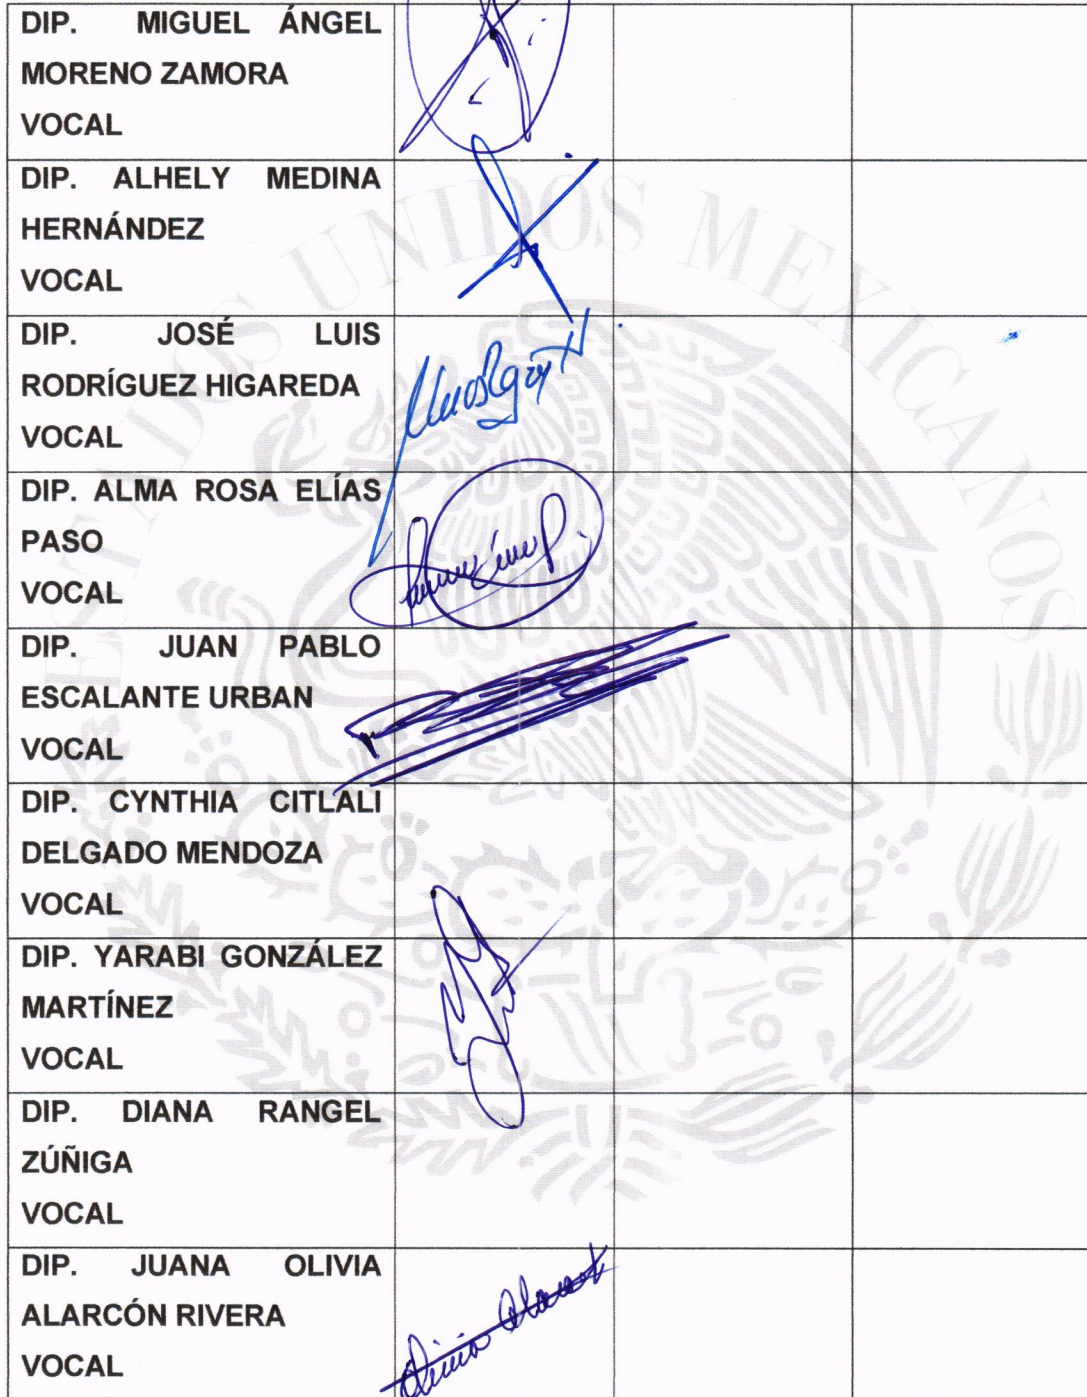 DIP. MIGUEL ÁNGEL
MORENO ZAMORA
VOCAL
DIP. ALHELY MEDINA
HERNÁNDEZ
VOCAL
DIP. JOSÉ LUIS
RODRÍGUEZ HIGAREDA
VOCAL
DIP. ALMA ROSA ELÍAS
PASO
VOCAL
DIP. JUAN PABLO
ESCALANTE URBAN
VOCAL
DIP. CYNTHIA CITLALI
DELGADO MENDOZA
VOCAL
DIP. YARABI GONZÁLEZ
MARTÍNEZ
VOCAL
DIP. DIANA RANGEL
ZÚÑIGA
VOCAL
DIP. JUANA OLIVIA
ALARCÓN RIVERA
VOCAL
ESTADOS UNIDOS MEXICANOS